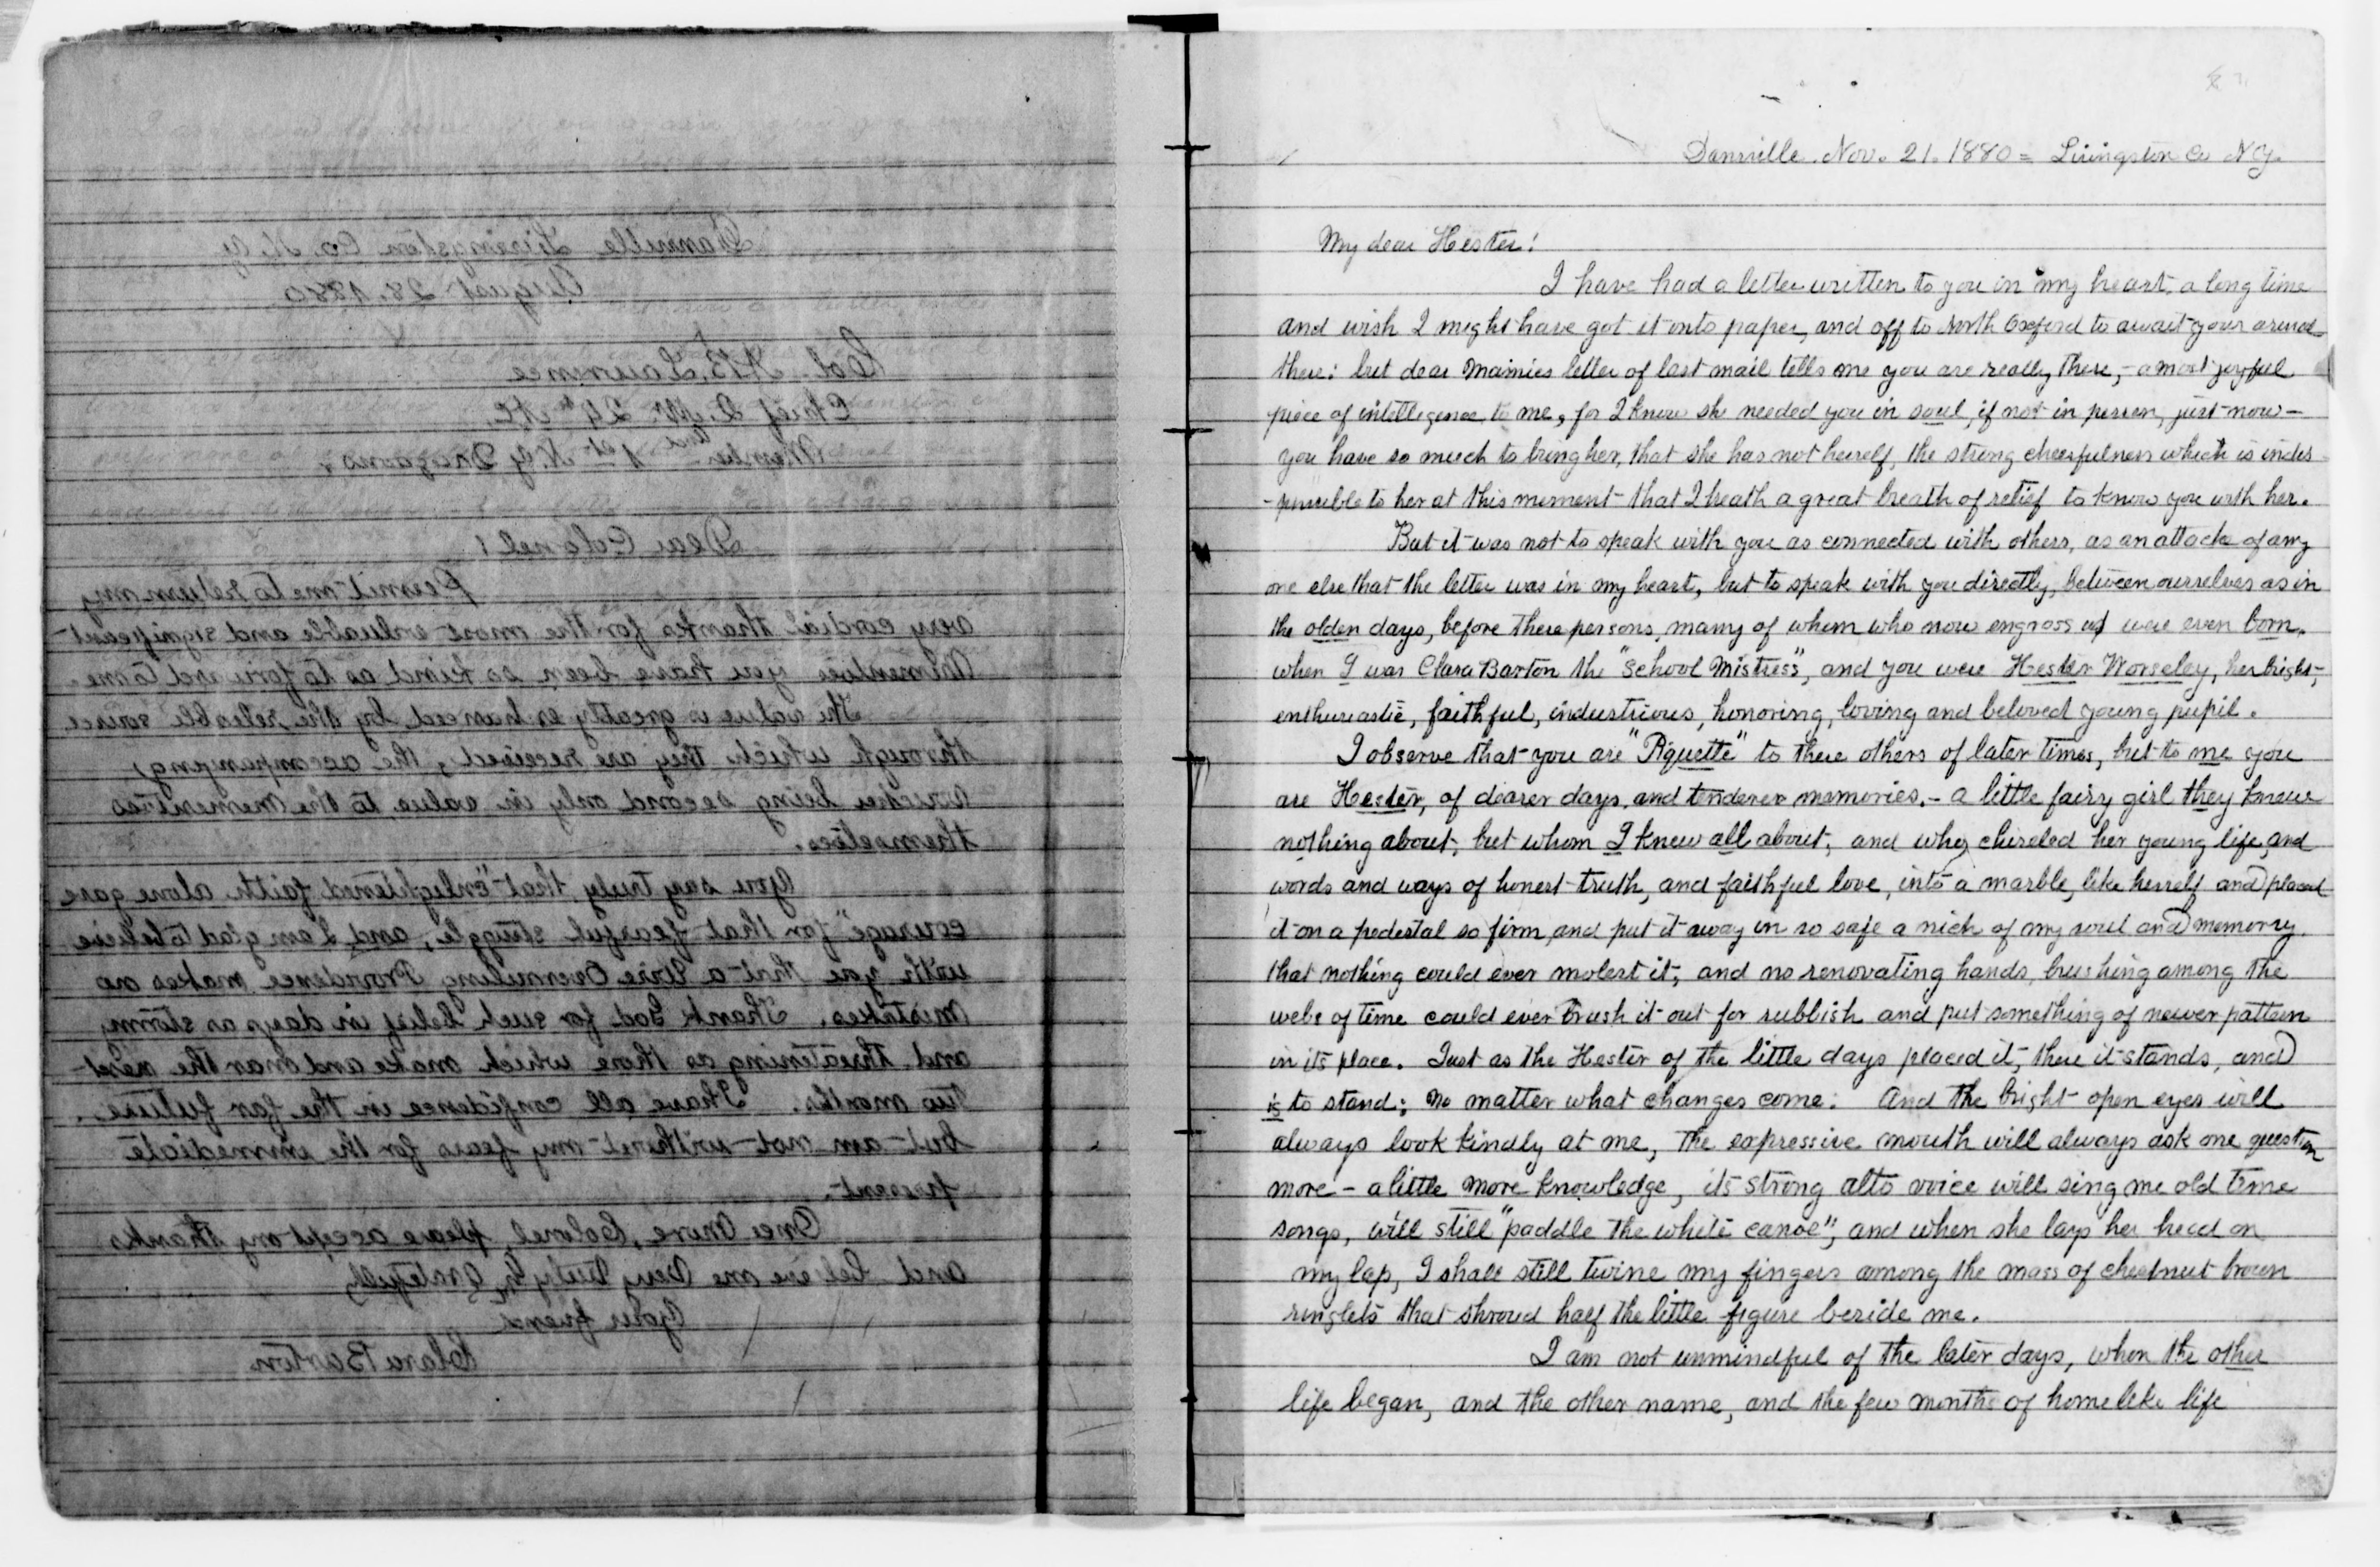 Dansville Livingston Co. N.Y.
August 28. 1880
Col. A B. Lawrence
Chief Q. M. 24th A.C.
Member and 1st N.Y Dragoons.
Dear Colonel!
Permit me to return my
very cordial thanks for the most valuable and significant
Momentoes you have been so kind as to forward to me.
The value is greatly enhanced by the reliable source
through which they are received, the accompanying
being second only in value to the mementoes
themselves.
You say truly that "enlightened faith alone gave
courage" for that fearful struggle, and I am glad to believe
with you that a Wise Overruling Providence makes no
mistakes. Thank God for such belief in days as stormy
and threatening as those which make and mar the next
two months. I have all confidence in the far future.
but am not without my fears for the immediate
present.
Once more, Colonel, please accept my thanks
and believe me Very truly & gratefully
Your friend
Clara Barton
Dansville. Nov. 21. 1880 = Livingston Co N Y.
My dear Hester!
I have had a letter written to you in my heart, a long time
and wish I might have got it onto paper, and off to North Oxford to await your arival
there: but dear Mamies letter of last mail tells me you are really there, - a most joyful
piece of intellegence to me, for I know she needed you in soul, if not in person, just now -
you have so much to bring her, that she has not herself, the strong cheerfulness which is indis
-pensible to her at this moment - that I breath a great breath of relief to know you with her.
But it was not to speak with you as connected with others, as an attache of any
one else that the letter was in my heart, but to speak with you directly, between ourselves as in
the olden days, before these persons, many of whom who now engross us were even born.
when I was Clara Barton the "School Mistress", and you were Hester Worseley, her bright,
enthusiastic, faithful, industrious, honoring, loving and beloved young pupil.
I observe that you are "Piquette" to these others of later times, but to me you
are Hester, of dearer days, and tenderer memories. - a little fairy girl they knew
nothing about, but whom I knew all about; and who chiseled her young life, and
words and ways of honest truth, and faithful love, into a marble, like herself and placed
it on a pedestal so firm, and put it away in so safe a nich of my soul and memory
that nothing could ever molest it; and no renovating hands, brushing among the
webs of time could ever brush it out for rubbish and put something of newer pattern
in its place. Just as the Hester of the little days placed it, there it stands, and
is to stand; no matter what changes come. And the bright open eyes will
always look kindly at me, the expressive mouth will always ask one question
more - a little more knowledge, its strong alto voice will sing me old time
songs, will still "paddle the white canoe", and when she lays her head on
my lap, I shall still twine my fingers among the mass of chestnut brown
ringlets that shroud half the little figure beside me.
I am not unmindful of the later days, when the other
life began, and the other name, and the few months of homelike life